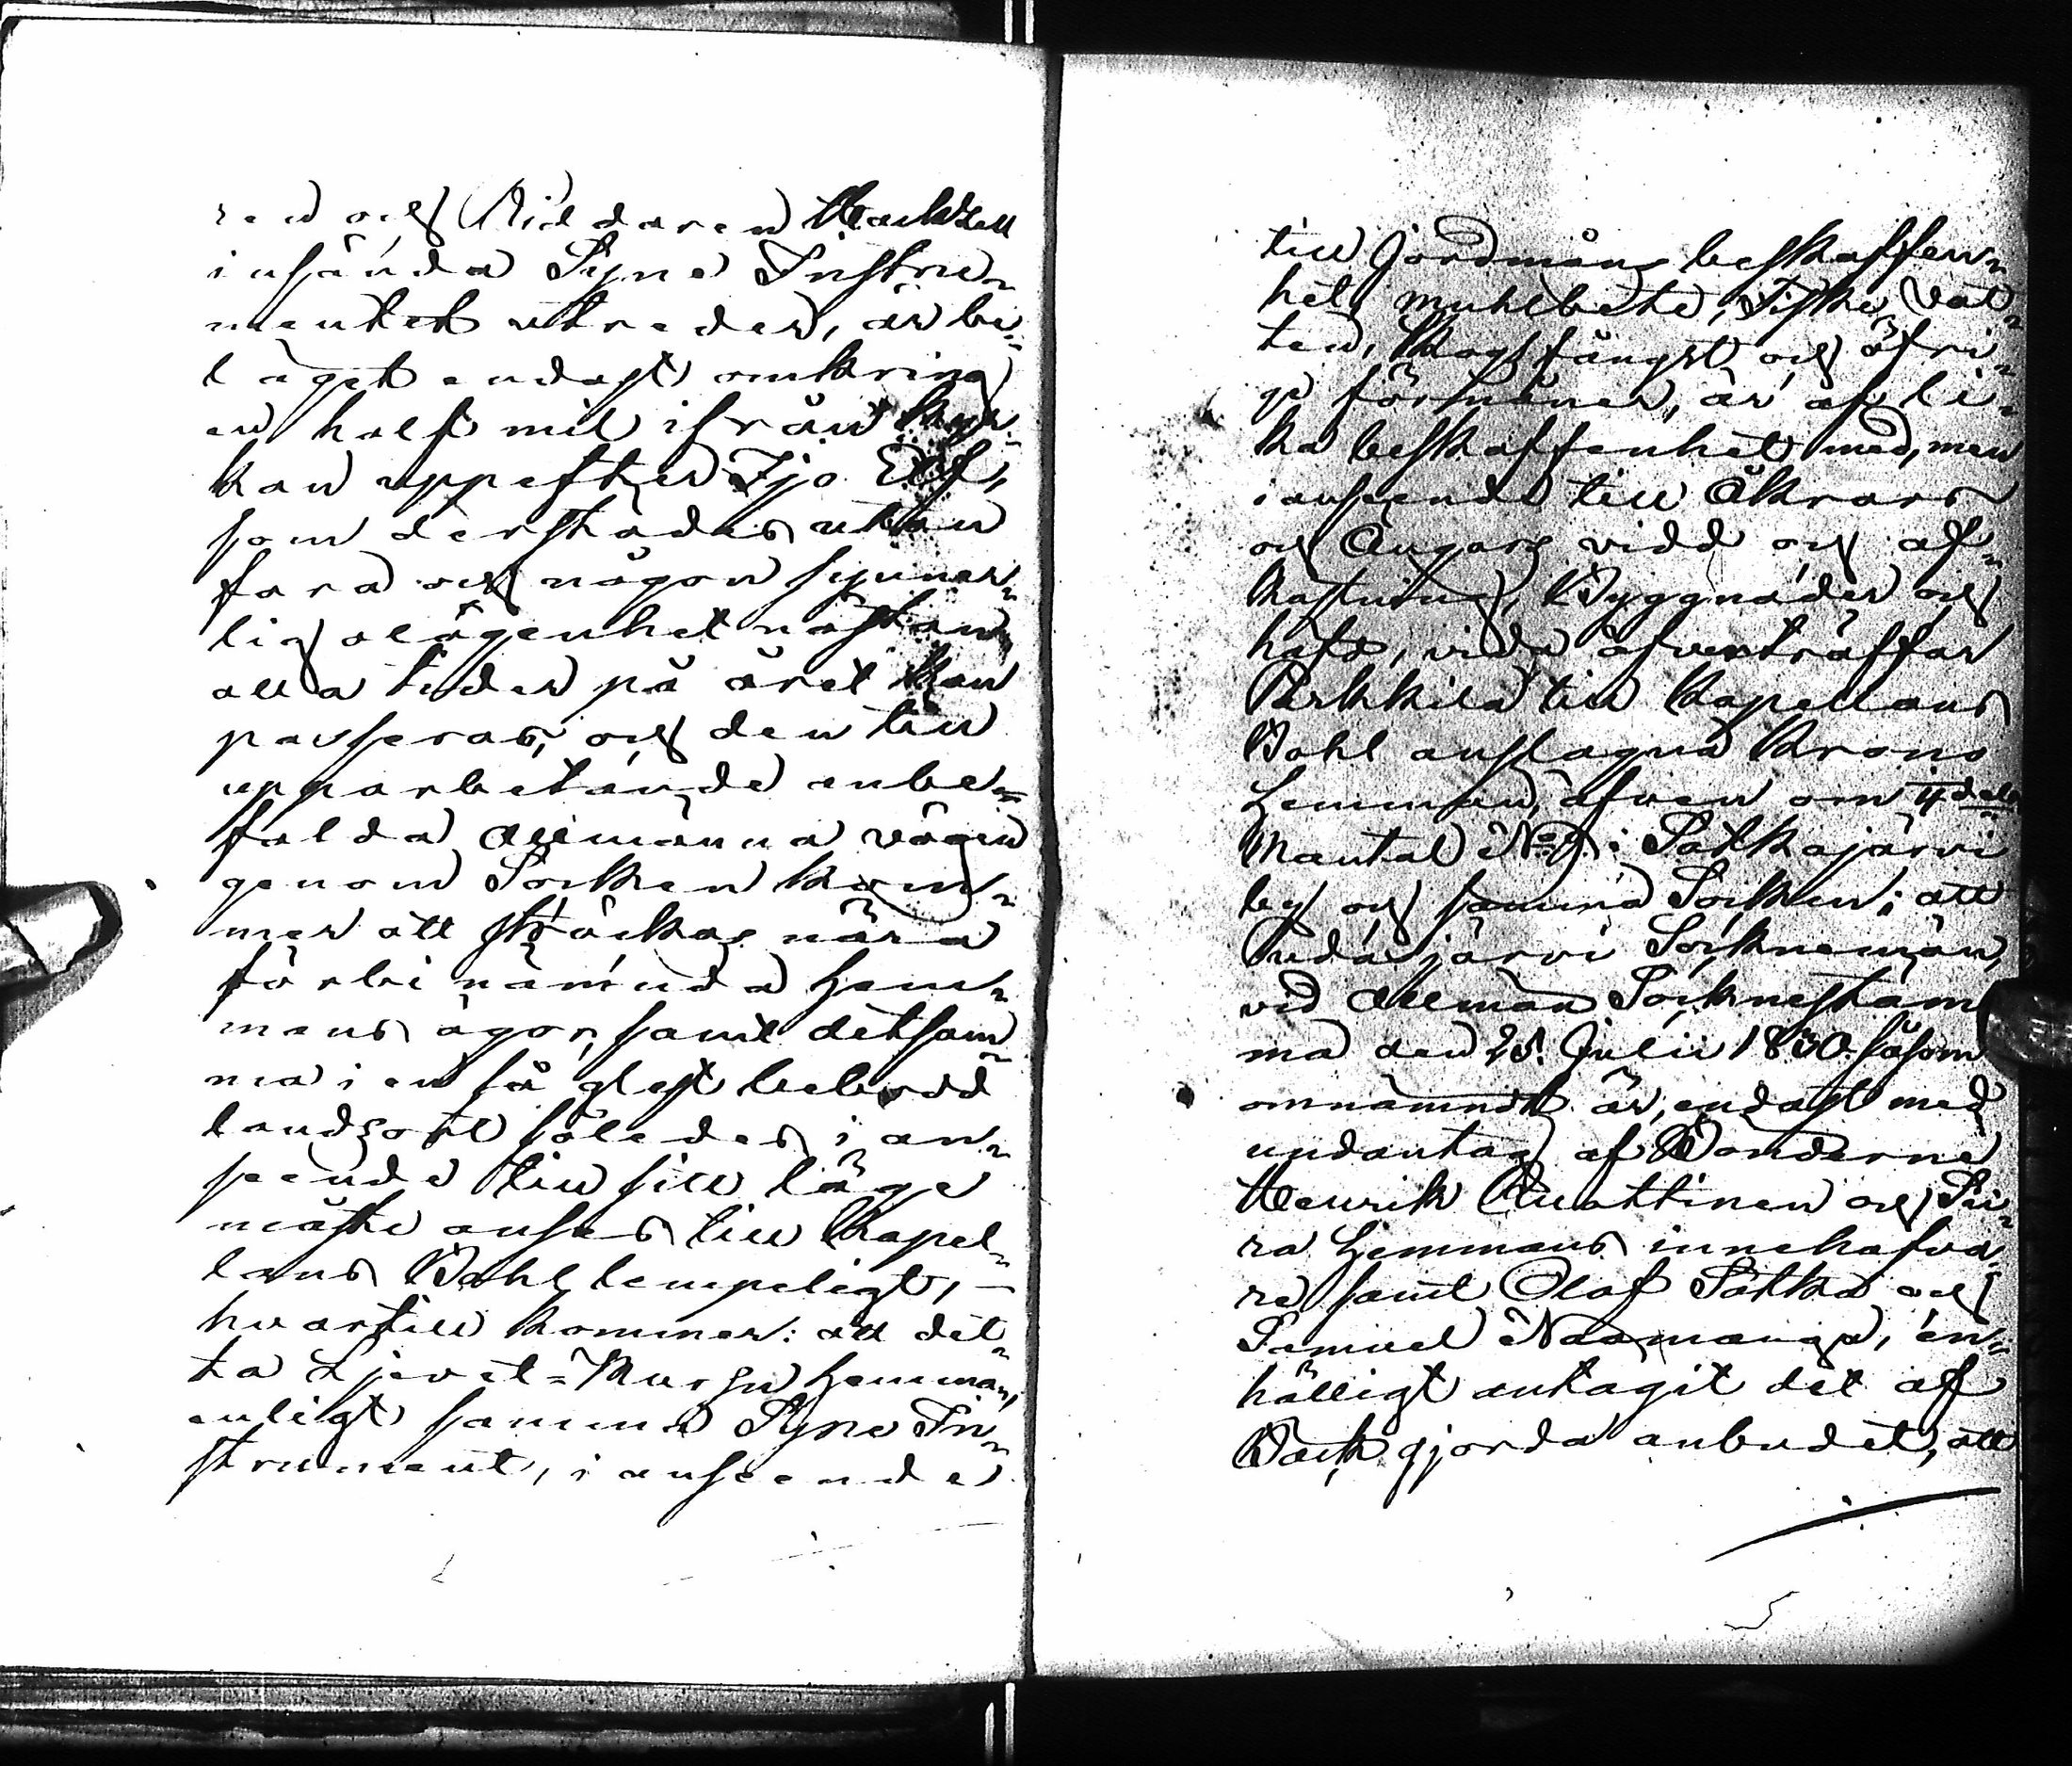 ren och Riddaren
insända Syne Instru-
mentet utreder, är be-
läget endast omkring
en half mil ifrån kyr-
kan uppefter Ijo Elf,
som derstädes utan
fara och någon synner-
lig olägenhet nästan
alla tider på året kan
passeras, och den till
upparbetande anbe-
falda Allmänna vägen
genom Socken kom-
mer att sträckas nära
förbi nämnda Hem-
mans ägor, samt detsam-
ma i en så glest bebodd
landsort således i an-
seende till sitt läge
måste anses till Kapel-
lans Bohl lempeligt, –
hvartill kommer: att det-
ta Hemman,
enligt samma Syne In-
strument, i anseende
till Jordmåns beskaffen-
het, muhlbete, Fiske vat-
ten, Skogsfångst och öfri-
ga förmåner, är af li-
ka beskaffenhet med, men
i anseende till Åkrars
och Ängars vidd och af-
kastning, Byggnader och
häfd, vida öfverträffar
Perkkilä till Kapellans
Bohl anslagna Krono
Hemman, äfven om 1/4 dels
Mantal No 9. i Sotkajärvi
by och samma Socken; att
Pudasjärvi Socknemän,
vid Allmän Sockneställm-
ma den 25. Julii 1830. såsom
omnämndt är, endast med
undantag af Bönderne
Henrik Luottinen och Pii-
ra Hemmans innehafva-
re samt Olof Sotka och
Samuel Naamanga, en-
hälligt antagit det af
Bäck gjorda anbudet, att